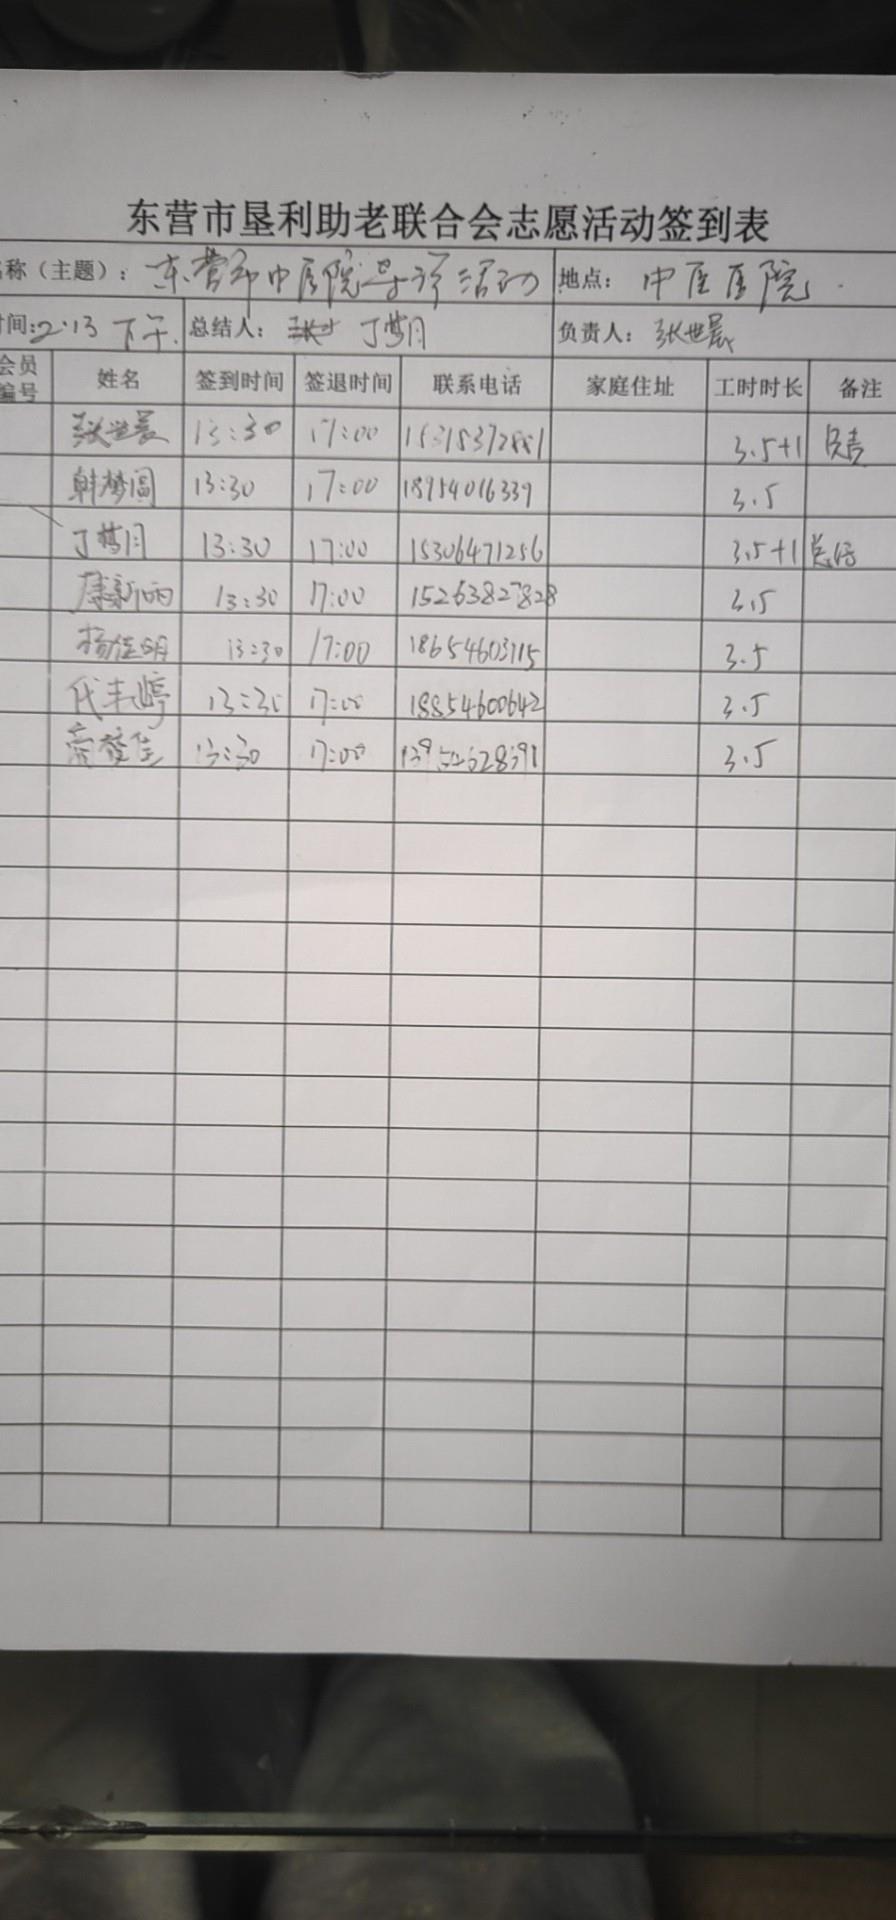 东营市垦利助老联合会志愿活动签到表
称（主题）：东营市中医院导诊活动 地点：中医医院
时间:2.13下午. 总结人：丁梦月 负责人：张世晨
会员编号 姓名 签到时间 签退时间 联系电话 家庭住址 工时时长 备注
张世晨 13:30 17:00 3.5+1 负责
韩梦圆 13:30 17:00 18954016339 3.5
丁梦月 13:30 17:00 15306471256 3.5+1 总结
康新雨 13:30 17:00 15263827828 3.5
杨佳明 13:30 17:00 18654603115 3.5
代韦婷 13:30 17:00 18854600642 3.5
13:30 17:00 3.5